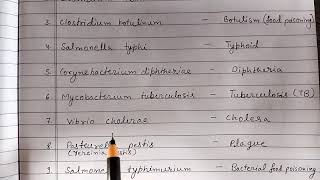 3. Clostridium botulinum - Botulism (food poisoning)
4. Salmonella typhi - Typhoid
5. Corynebacterium diphtheriae - Diphtheria
6. Mycobacterium tuberculosis - Tuberculosis (TB)
7. Vibrio cholerae - Cholera
8. Pasteurella pestis - Plague
(Yersinia pestis)
9. Salmonella typhimurium - Bacterial food poisoning